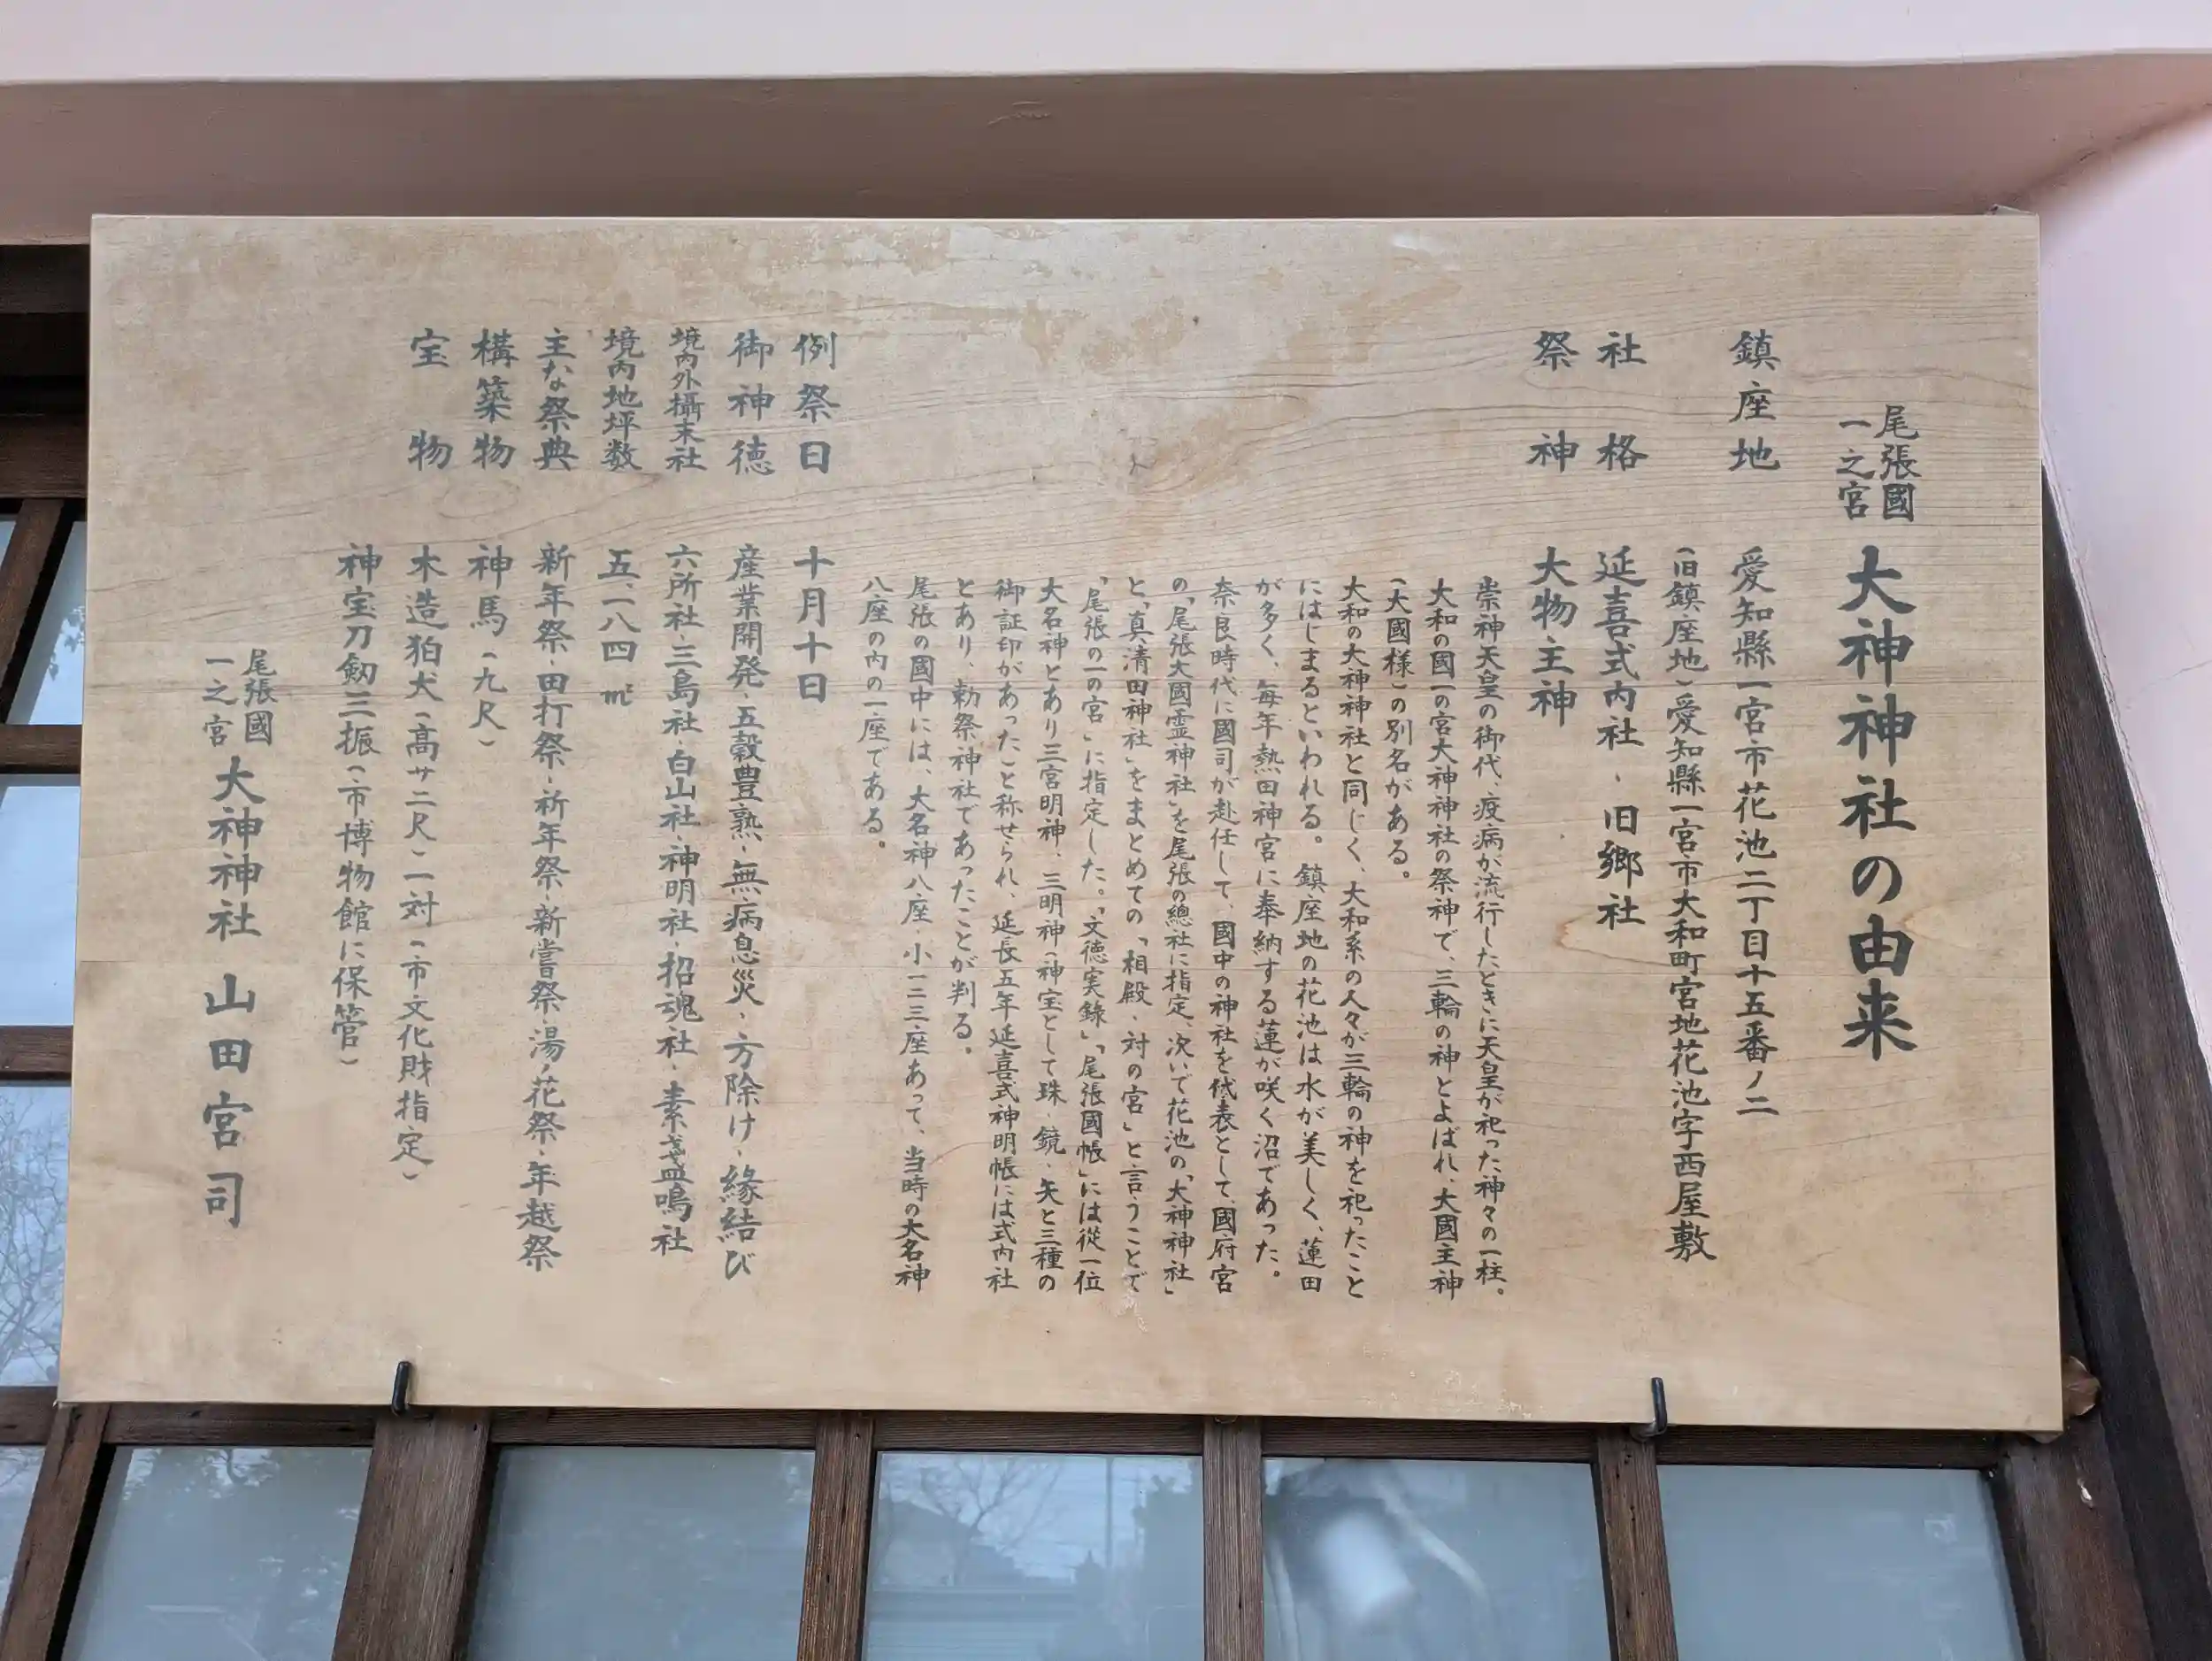 尾張國
一之宮 大神神社の由来
鎮座地 愛知縣一宮市花池二丁目十五番ノ二
(旧鎮座地)愛知縣一宮市大和町宮地花池字西屋敷
社格 延喜式内社、旧郷社
祭神 大物主神
崇神天皇の御代、疫病が流行したときに天皇が祀った神々の一柱。
大和の國一の宮大神神社の祭神で、三輪の神とよばれ、大國主神
(大國様)の別名がある。
大和の大神神社と同じく、大和系の人々が三輪の神を祀ったこと
にはじまるといわれる。鎮座地の花池は水が美しく、蓮田
が多く、毎年熱田神宮に奉納する蓮が咲く沼であった。
奈良時代に國司が赴任して、國中の神社を代表として、國府宮
の「尾張大國霊神社」を尾張の總社に指定、次いで花池の「大神神社」
と「真清田神社」をまとめての「相殿、対の宮」と言うことで
「尾張の一の宮」に指定した。「文徳実錄」「尾張國帳」には従一位
大名神とあり三宮明神、三明神(神宝として珠、鏡、矢と三種の
御証印があったこと称せられ、延長五年延喜式神明帳には式内社
とあり、勅祭神社であったことが判る。
尾張の國中には、大名神八座、小一三三座あって、当時の大名神
八座の内の一座である。
例祭日 十月十日
御神徳 産業開発、五穀豊熟、無病息災、方除け、縁結び
境内外攝末社 六所社、三島社、白山社、神明社、招魂社、素盞鳴社
境内地坪数 五、一八四㎡
主な祭典 新年祭、田打祭、祈年祭、新嘗祭、湯ノ花祭、年越祭
構築物 神馬(九尺)
木造狛犬(高サ二尺)一対(市文化財指定)
宝物 神宝刀劔三振(市博物館に保管)
尾張國
一之宮 大神神社 山田宮司